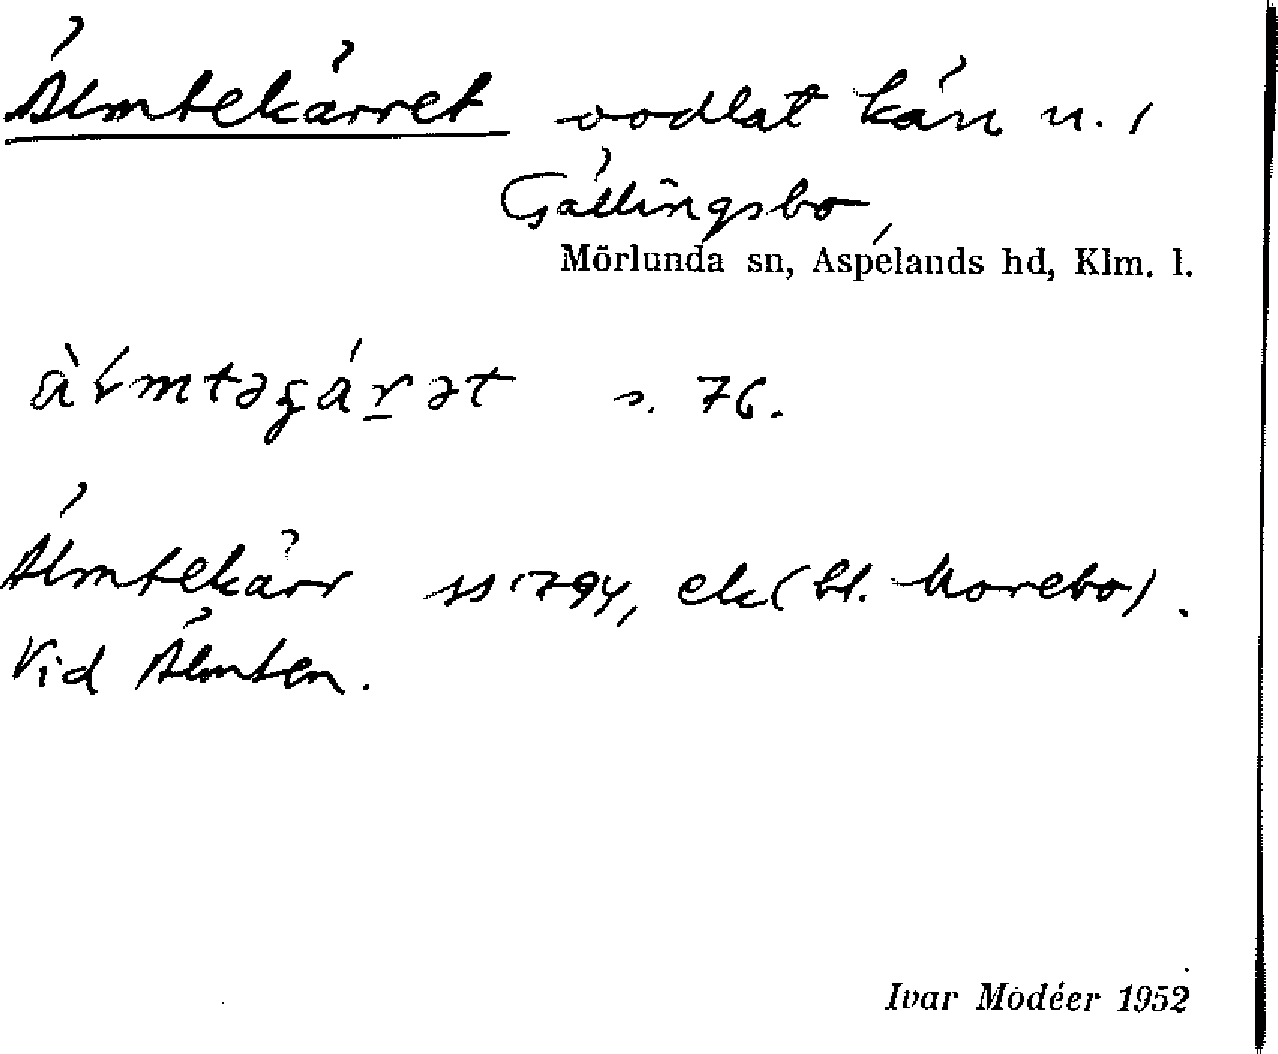 Älmtekärret oodlat kärr n. i
Gällingsbo
Mörlunda sn, Aspelands hd, Klm. l.
s. 76.
Älmtekärr ss 1794, ek (bl. Morebo).
Vid Älmten.
Ivar Modéer 1952